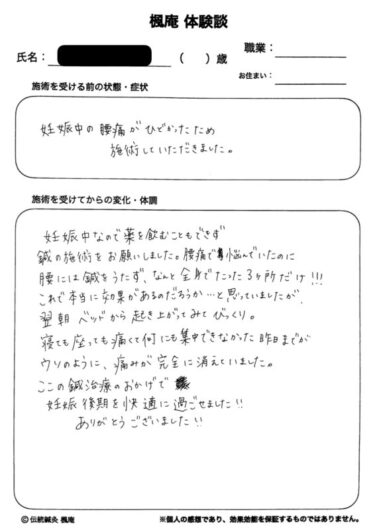 楓庵 体験談
氏名：
（　）歳
職業：
お住まい：
施術を受ける前の状態・症状
妊娠中の腰痛がひどかったため
施術していただきました。
施術を受けてからの変化・体調
妊娠中なので薬を飲むこともできず
鍼の施術をお願いしました。腰痛で悩んでいたのに
腰には鍼をうたず、なんと全身でたった3ヶ所だけ!!!
これで本当に効果があるのだろうか…と思っていましたが、
翌朝ベッドから起き上がってみてびっくり。
寝ても座っても痛くて何にも集中できなかった昨日までが
ウソのように、痛みが完全に消えていました。
ここの鍼治療のおかげで
妊娠後期を快適に過ごせました!!
ありがとうございました!!
©伝統鍼灸 楓庵
※個人の感想であり、効果効能を保証するものではありません。